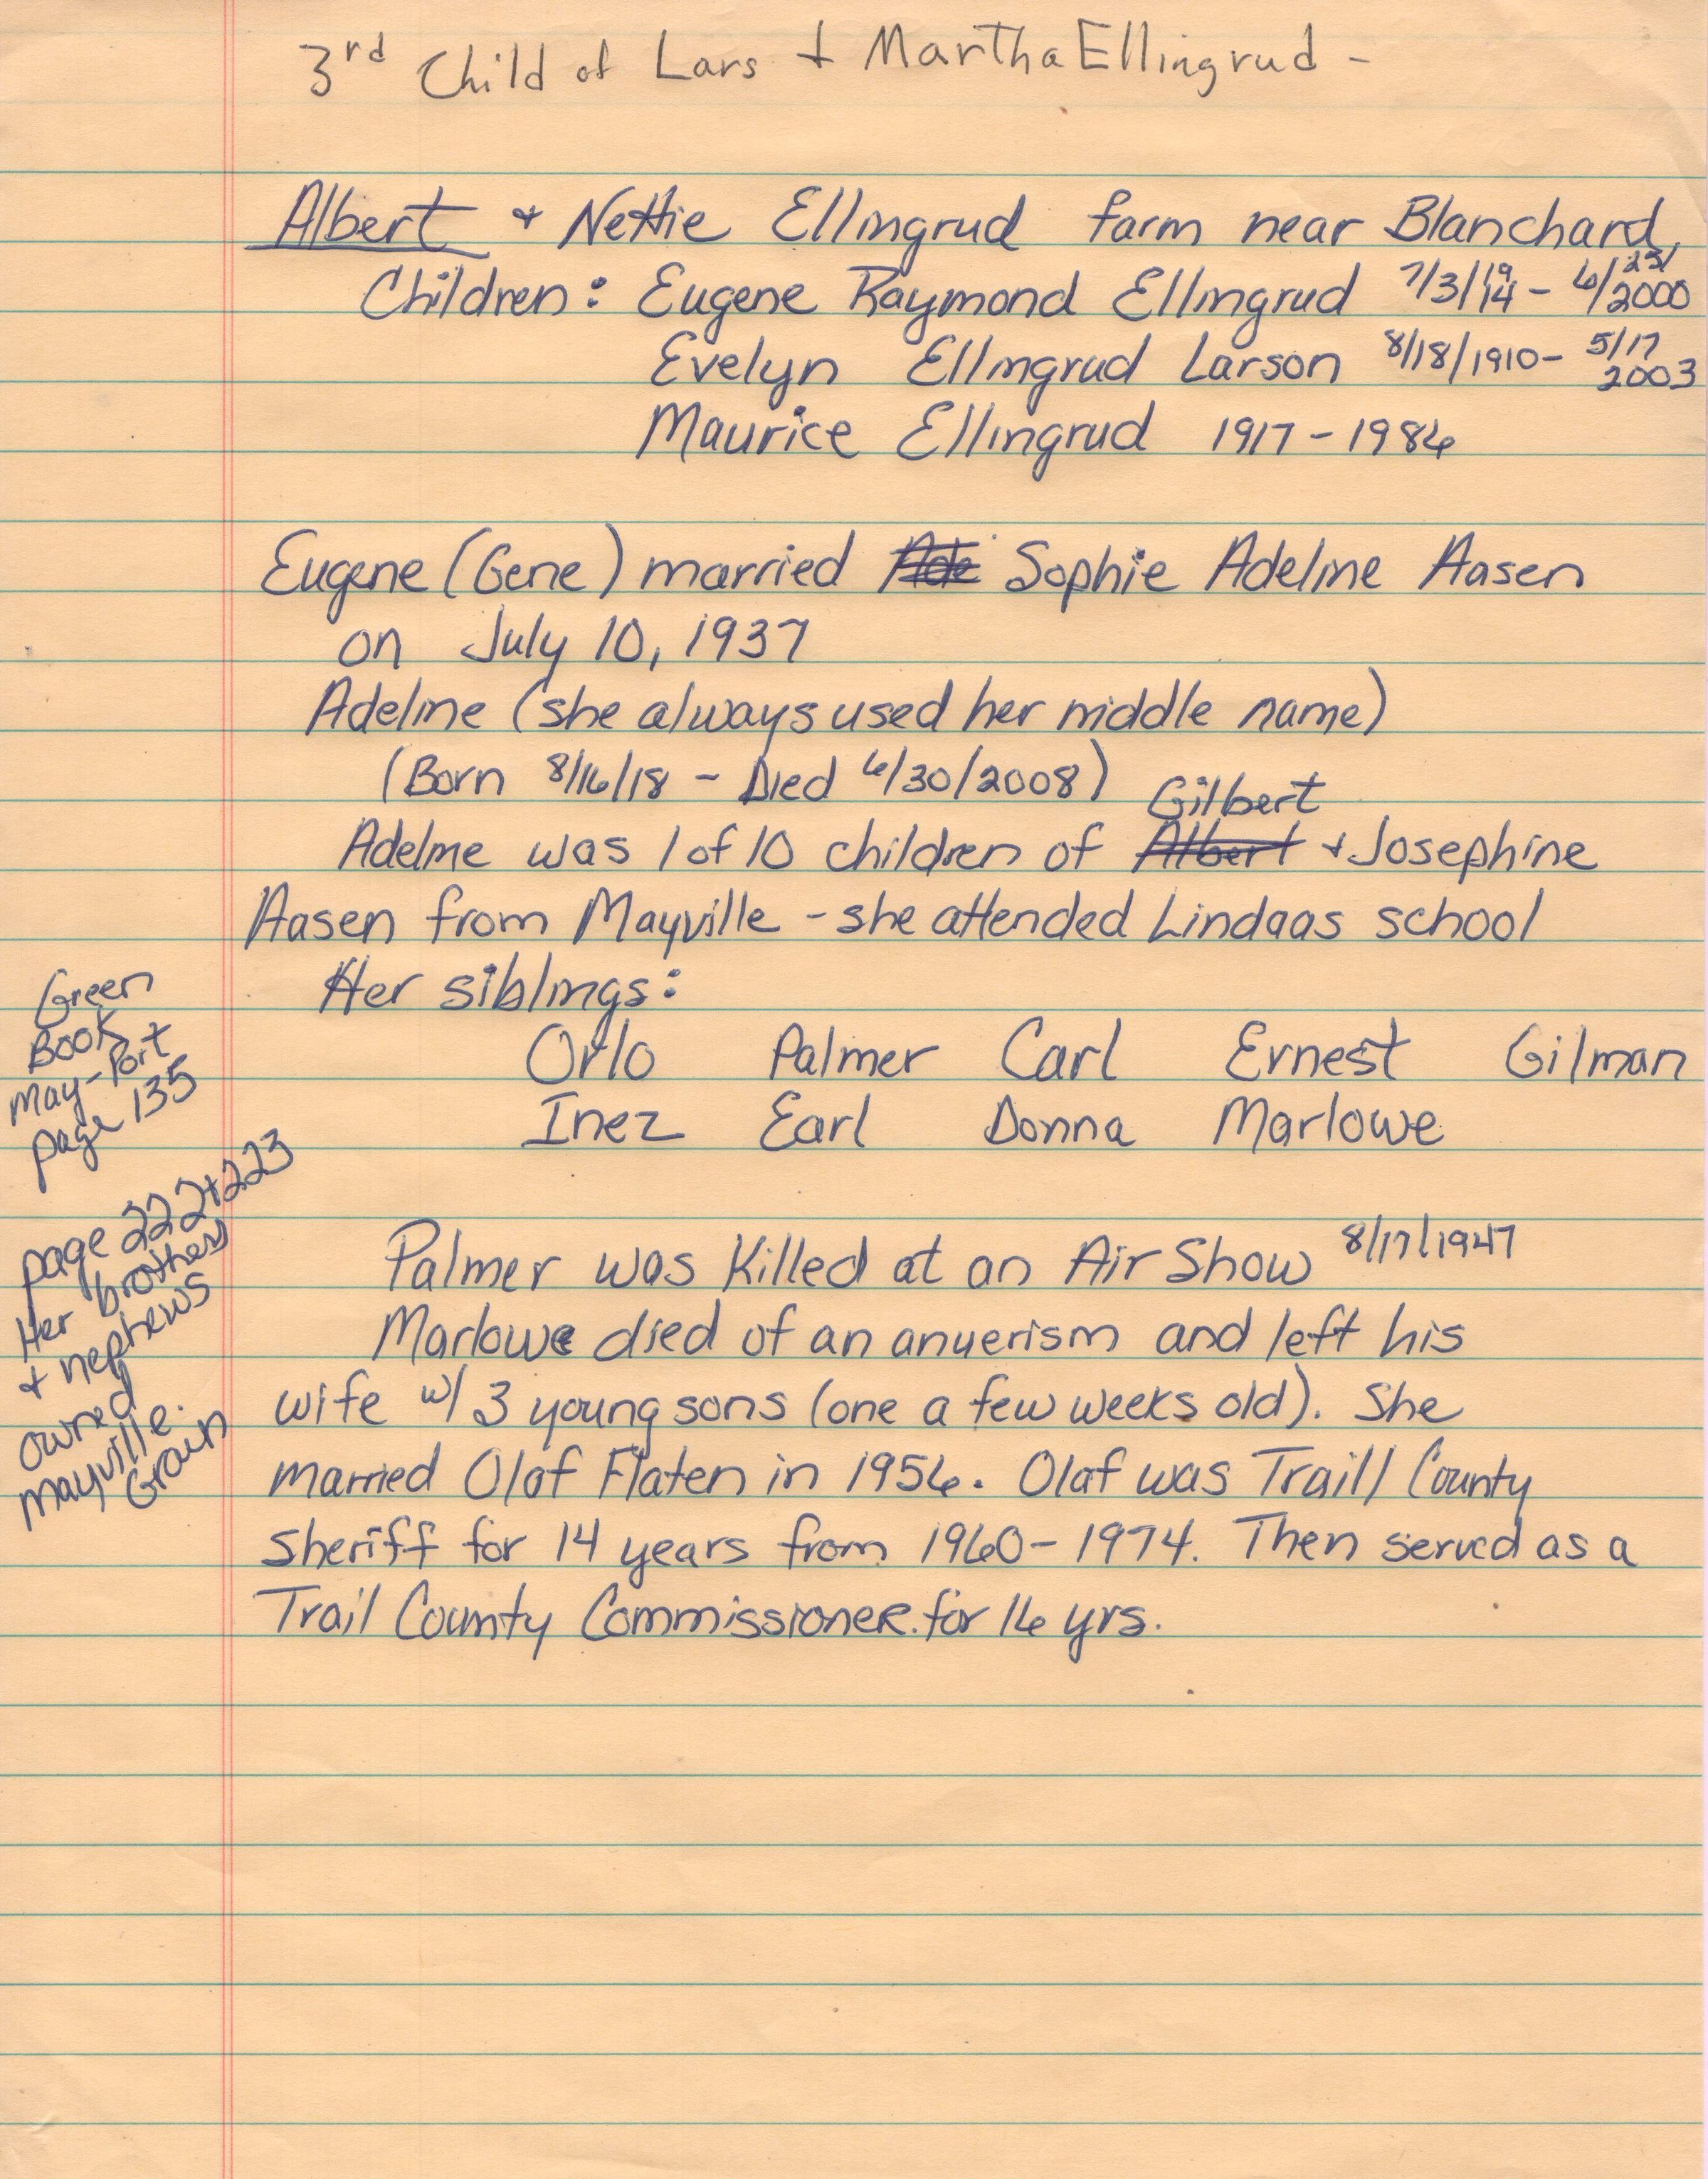 3rd Child of Lars + Martha Ellingrud -
Albert + Nettie Ellingrud farm near Blanchard,
Children: Eugene Raymond Ellingrud 7/3/1914 - 6/23/2000
Evelyn Ellingrud Larson 8/18/1910 - 5/17 2003
Maurice Ellingrud 1917 - 1986
Eugene (Gene) married Ade Sophie Adeline Aasen
on July 10, 1937
Adeline (she always used her middle name)
(Born 8/16/18 - Died 6/30/2008)
Gilbert
Adeline was 1 of 10 children of Albert + Josephine
Aasen from Mayville - she attended Lindaas school
Her siblings:
Orlo Palmer Carl Ernest Gilman
Inez Earl Donna Marlowe
Green
Book
May-Port
page 135
page 222+223
Her brothers
+ nephews
owned
Mayville
Grain
Palmer was Killed at an Air Show 8/17/1947
Marlowe died of an anuerism and left his
wife w/ 3 young sons (one a few weeks old). She
married Olaf Flaten in 1956. Olaf was Traill County
Sheriff for 14 years from 1960 - 1974. Then served as a
Trail County Commissioner for 16 yrs.